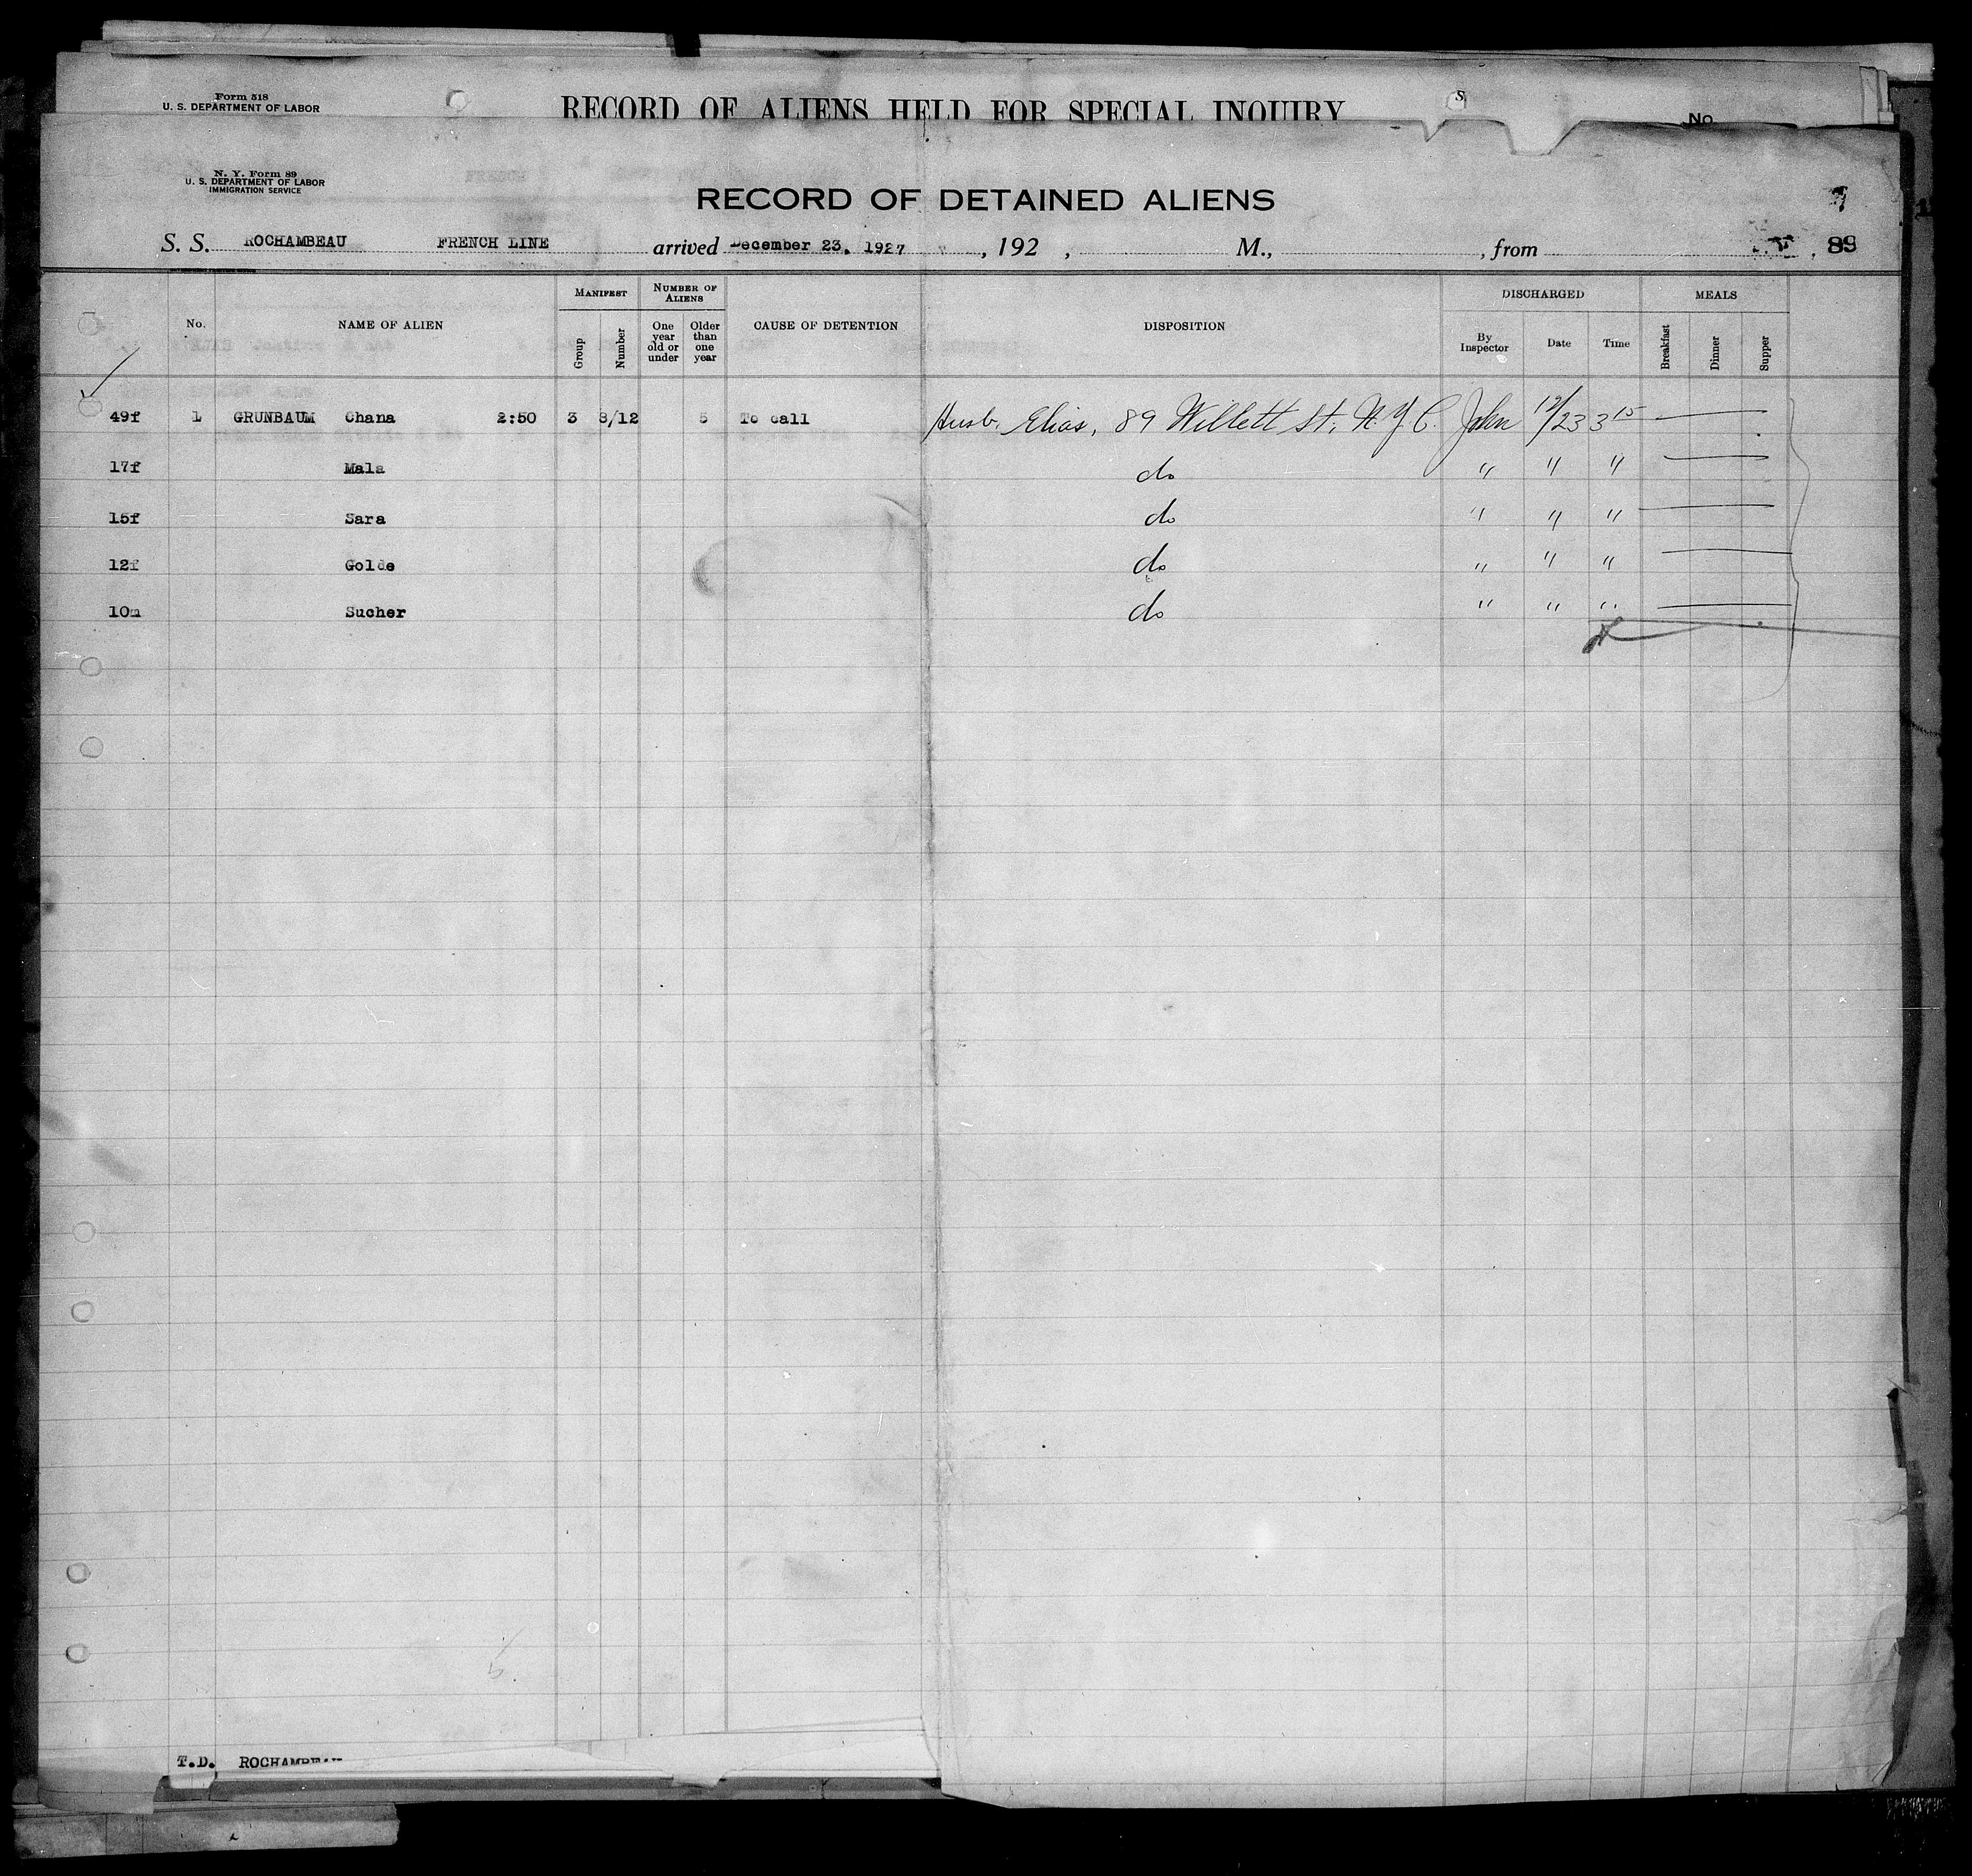 Form 518
U. S. DEPARTMENT OF LABOR
RECORD OF ALIENS HELD FOR SPECIAL INQUIRY
S.
No.
N. Y. Form 89
U. S. DEPARTMENT OF LABOR
IMMIGRATION SERVICE
RECORD OF DETAINED ALIENS
S. S. ROCHAMBEAU FRENCH LINE arrived December 23, 1927, 192 , M., , from , 89
No. NAME OF ALIEN MANIFEST Group Number NUMBER OF ALIENS One year old or under Older than one year CAUSE OF DETENTION DISPOSITION DISCHARGED By Inspector Date Time MEALS Breakfast Dinner Supper
49f 1 GRUNBAUM Chana 2:50 3 8/12 5 To call Husb. Elias, 89 Willett St, N.Y.C. John 12/23 3 15
17f Mala do " " "
15f Sara do " " "
12f Golde do " " "
10m Sucher do " " "
T.D. ROCHAMBEAU